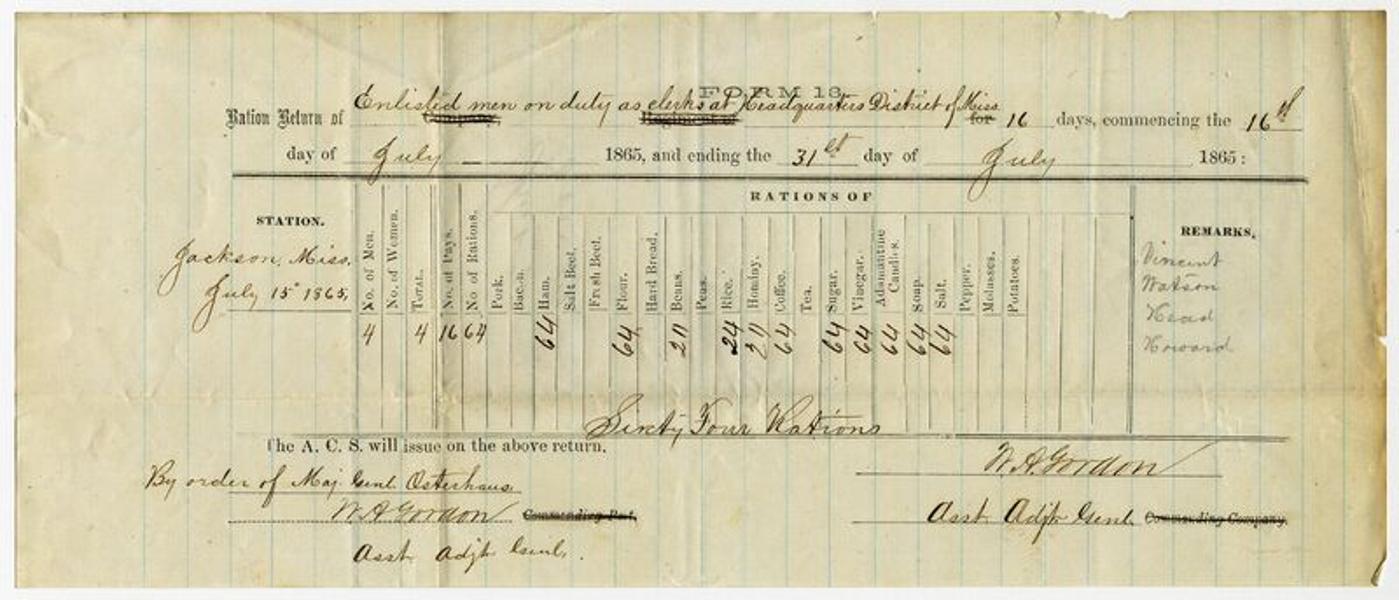 FORM 13.
Ration Return of Enlisted men on duty as clerks at Headquarters District of Miss. Company, Regiment of for 16 days, commencing the 16th
day of July 1865, and ending the 31st day of July 1865:
RATIONS OF
STATION. No. of Men. No. of Women. Total. No. of Days. No of Rations. Pork. Bacon. Ham. Salt Beef. Fresh Beef. Flour. Hard Bread. Beans. Peas. Rice. Hominy. Coffee. Tea. Sugar. Vinegar. Adamantine Candles. Soap. Salt. Pepper. Molasses. Potatoes. REMARKS.
Jackson, Miss. Vincent
July 15" 1865, Watson
Head
4 4 16 64 64 64 24 64 64 64 64 64 64 Howard
Sixty Four Rations
The A. C. S. will issue on the above return.
W. A. Gordon
By order of Maj. Genl. Osterhaus.
W. A. Gordon Commanding Post. Asst. Adjt. Genl. Commanding Company.
Asst. Adjt. Genl.